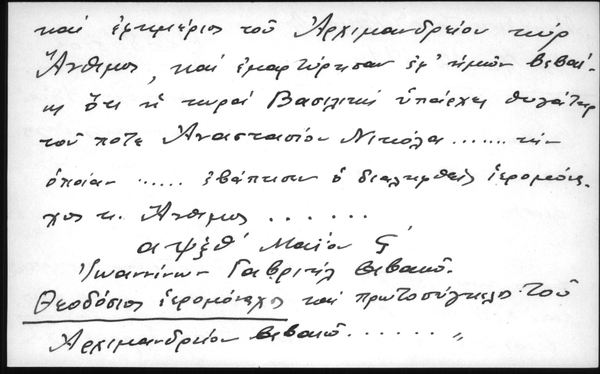 καί ἐφημέριος τοῦ Ἀρχιμανδρείου κύρ
Ἄνθιμος, καί ἐμαρτύρησαν ἐφ' ἡμῶν βεβαί-
ως ὅτι ἡ κυρά Βασιλική ὑπάρχει θυγάτηρ
τοῦ ποτε Ἀναστασίου Νικόλα ....... τήν
ὁποίαν ...... ἐβάπτισεν ὁ διαληφθείς ἱερομόνα-
χος κ. Ἄνθιμος ......
αψξθ' Μαΐου ϛ'
Ἰωαννίνων Γαβριήλ βεβαιοῖ.
Θεοδόσιος ἱερομόναχος καί πρωτοσύγκελος τοῦ
Ἀρχιμανδρείου βεβαιοῖ ...... "